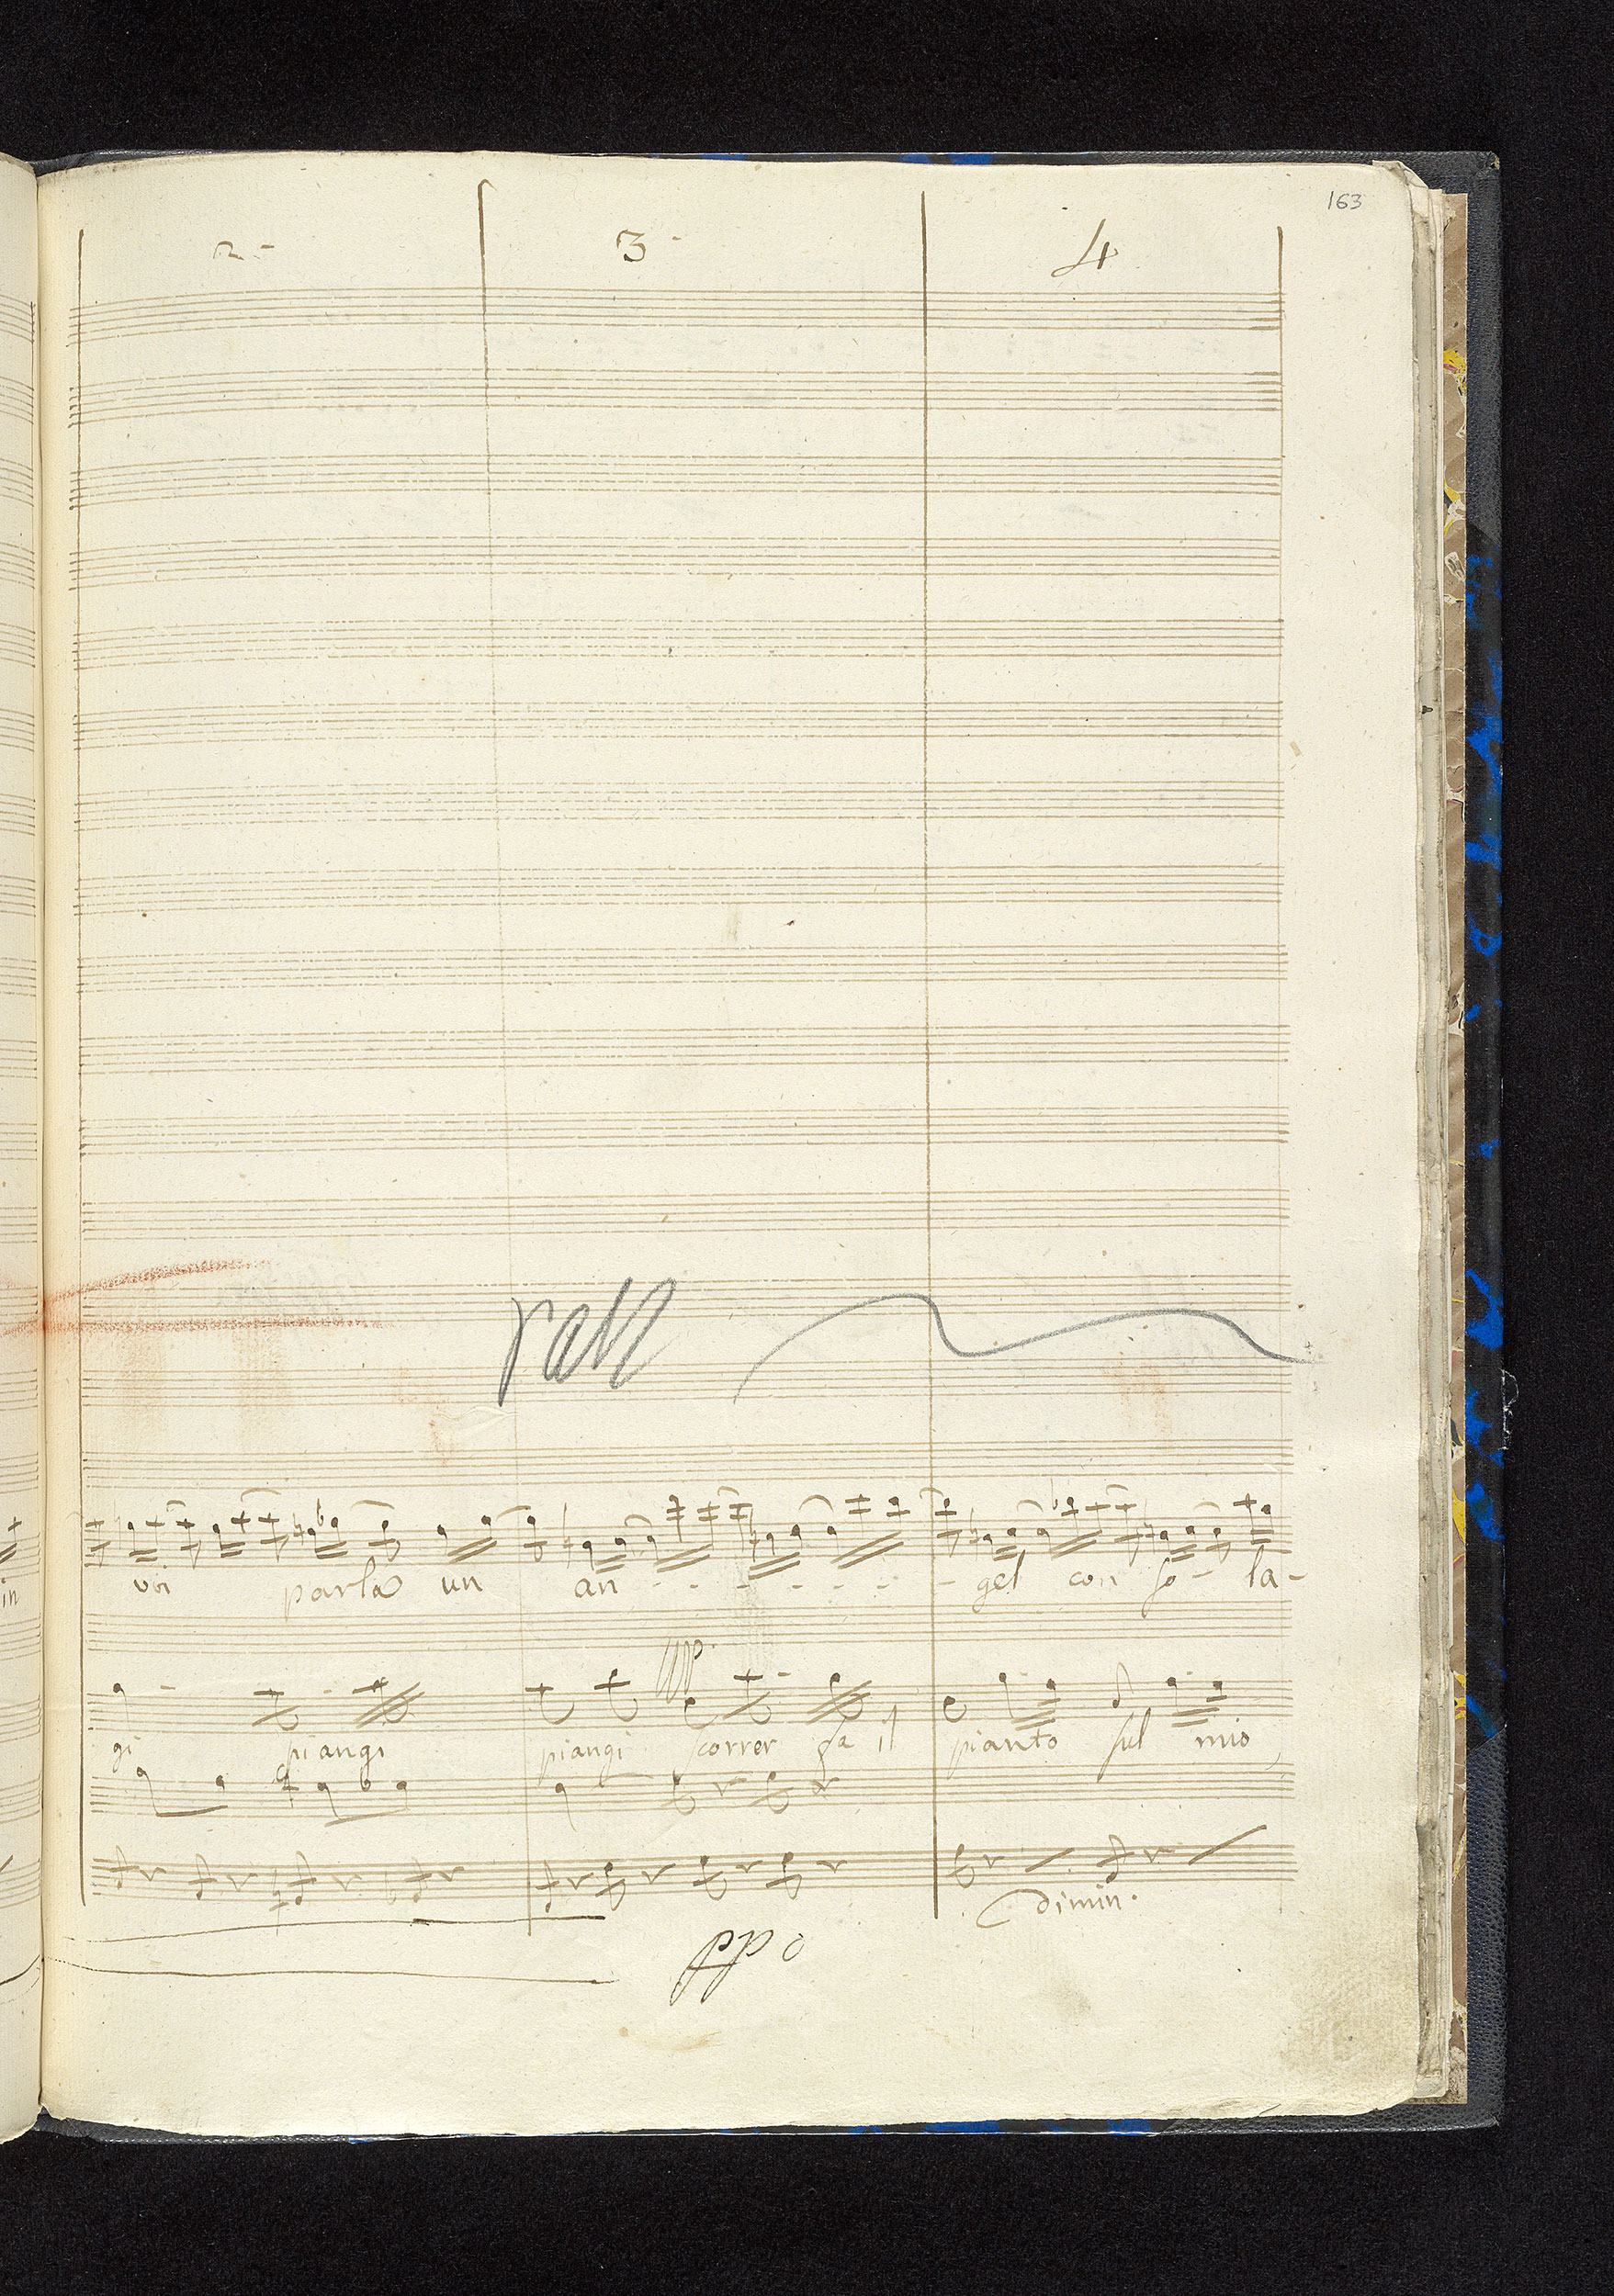 163
2 3 4
rall
in voi parla un an - - - - - - - gel con so - la -
ppp.
gi piangi piangi scorrer fa il pianto sul mio
dimin.
ppo